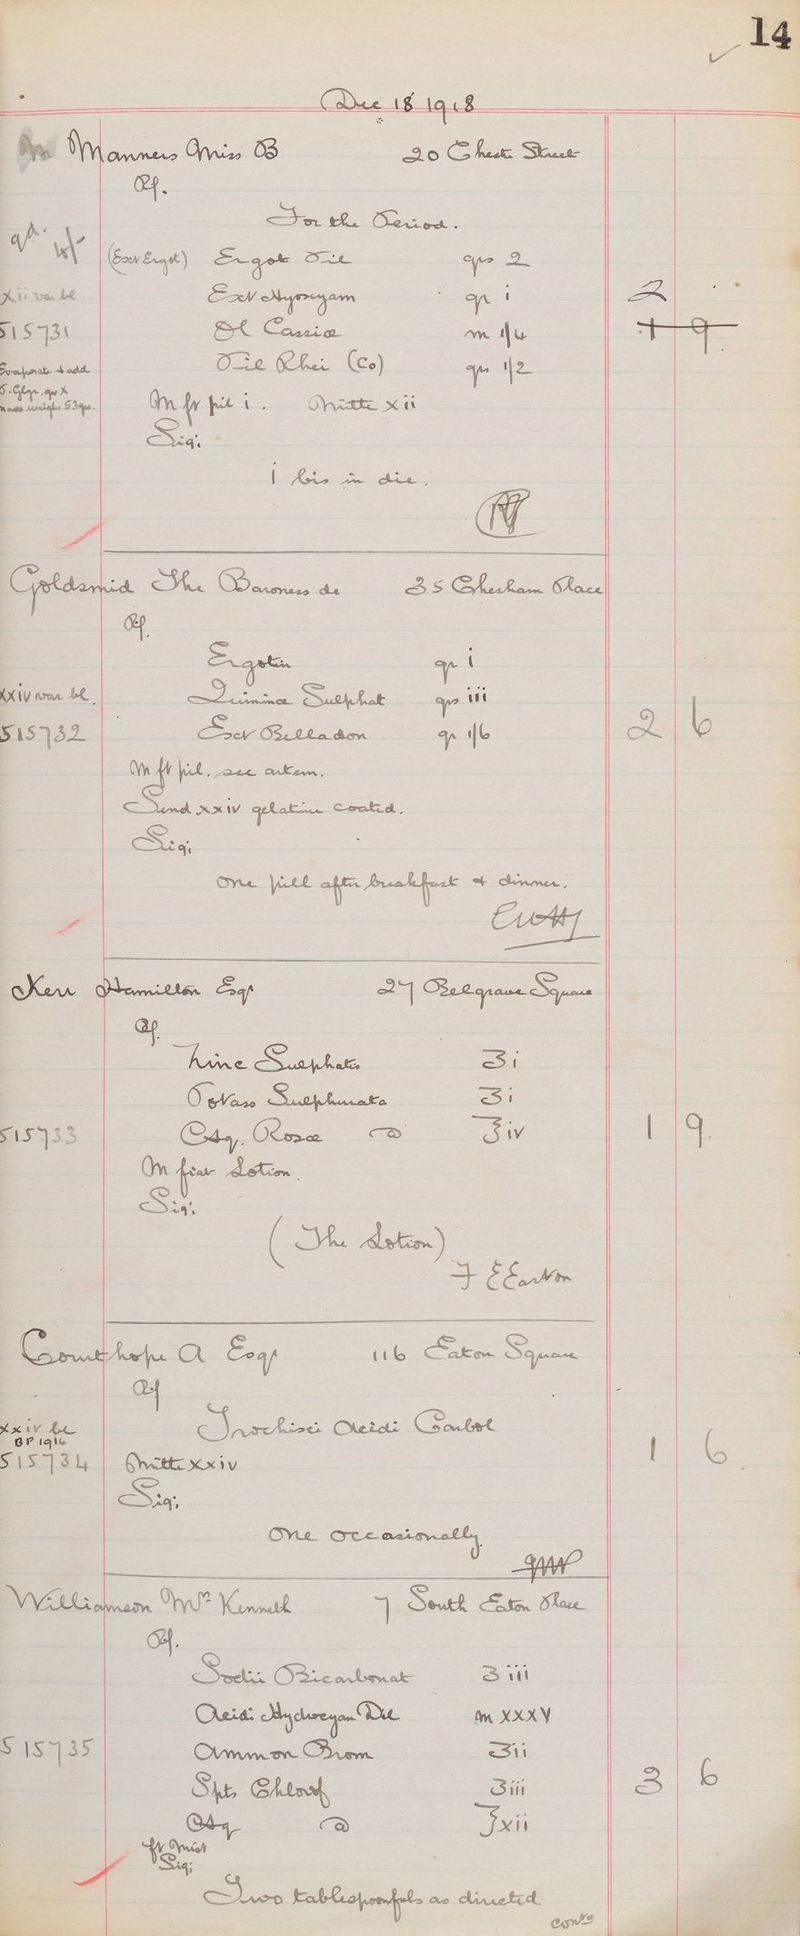 14
Dec 18 1918
Manners Miss B 20 Cheste Street
Rf.
For the Period.
qd.
(Ext Ergot) Ergot Pil grs 2
xii var bl Ext Hyoscyam gr i 2
515731 Ol Cassiæ m 1/4 1 9
Evaporate & add Pil Rhei (Co) grs 1/2
P. Glyc. qs X
mass weighs 53grs. M ft pil i. Mitte xii
Sig;
i bis in die.
Goldsmid The Baroness de 35 Chesham Place
Rf.
Ergotin gr i
xxiv var bl. Quininæ Sulphat grs iii
515732 Ext Belladon gr 1/6 2 6
M ft pil. sec artem.
Send xxiv gelatine coated.
Sig;
One pill after breakfast & dinner.
Kerr Hamilton Esqr 27 Belgrave Square
Rf.
Zinc Sulphatis ʒi
Potass Sulphurata ʒi
515733 Aq. Rosæ @ ℥iv 1 9.
M fiat Lotion.
Sig;
(The Lotion)
F E Easton
Courthope A Esqr 116 Eaton Square
Rf
Trochisci Acidi Carbol
xxiv bl
BP 1914
515734 Mitte xxiv 1 6
Sig;
One occasionally.
Williamson Mrs Kenneth 7 South Eaton Place
Rf.
Sodii Bicarbonat ʒiii
Acidi Hydrocyan Dil m xxxv
515735 Ammon Brom ʒii
Spts Chlorof ʒiii 3 6
Aq @ ℥xii
ft Mist
Sig;
Two tablespoonfuls as directed
contd